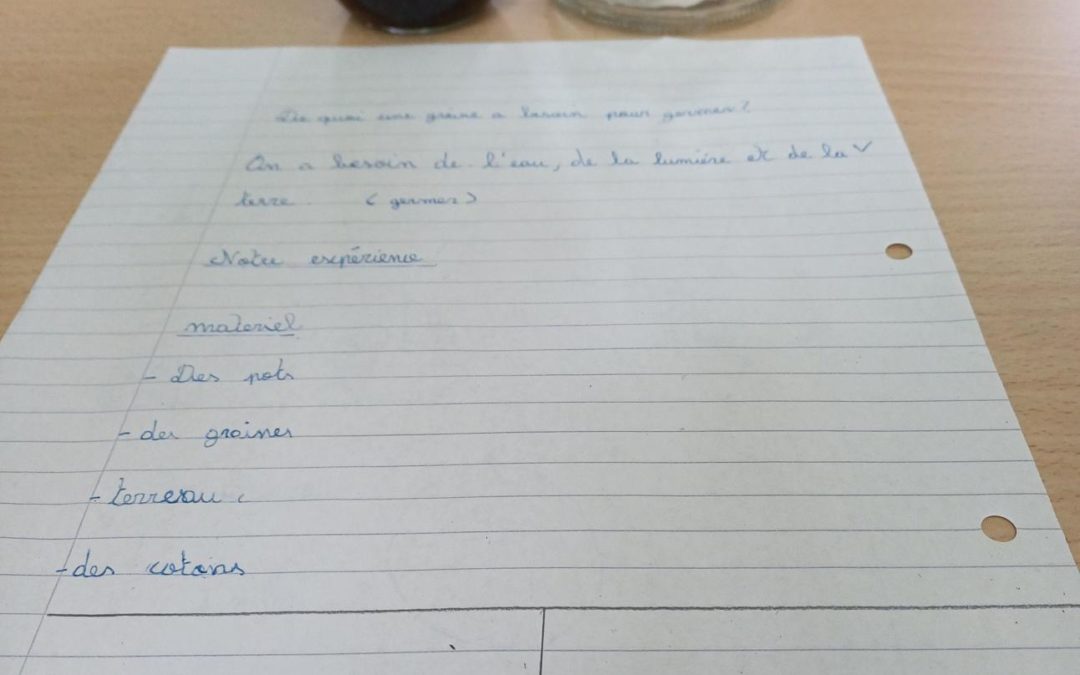 De quoi une graine a besoin pour germer?
On a besoin de l'eau, de la lumière et de la
terre. (germer)
Notre expérience
materiel
- Des pots
- des graines
- terreau
- des cotons